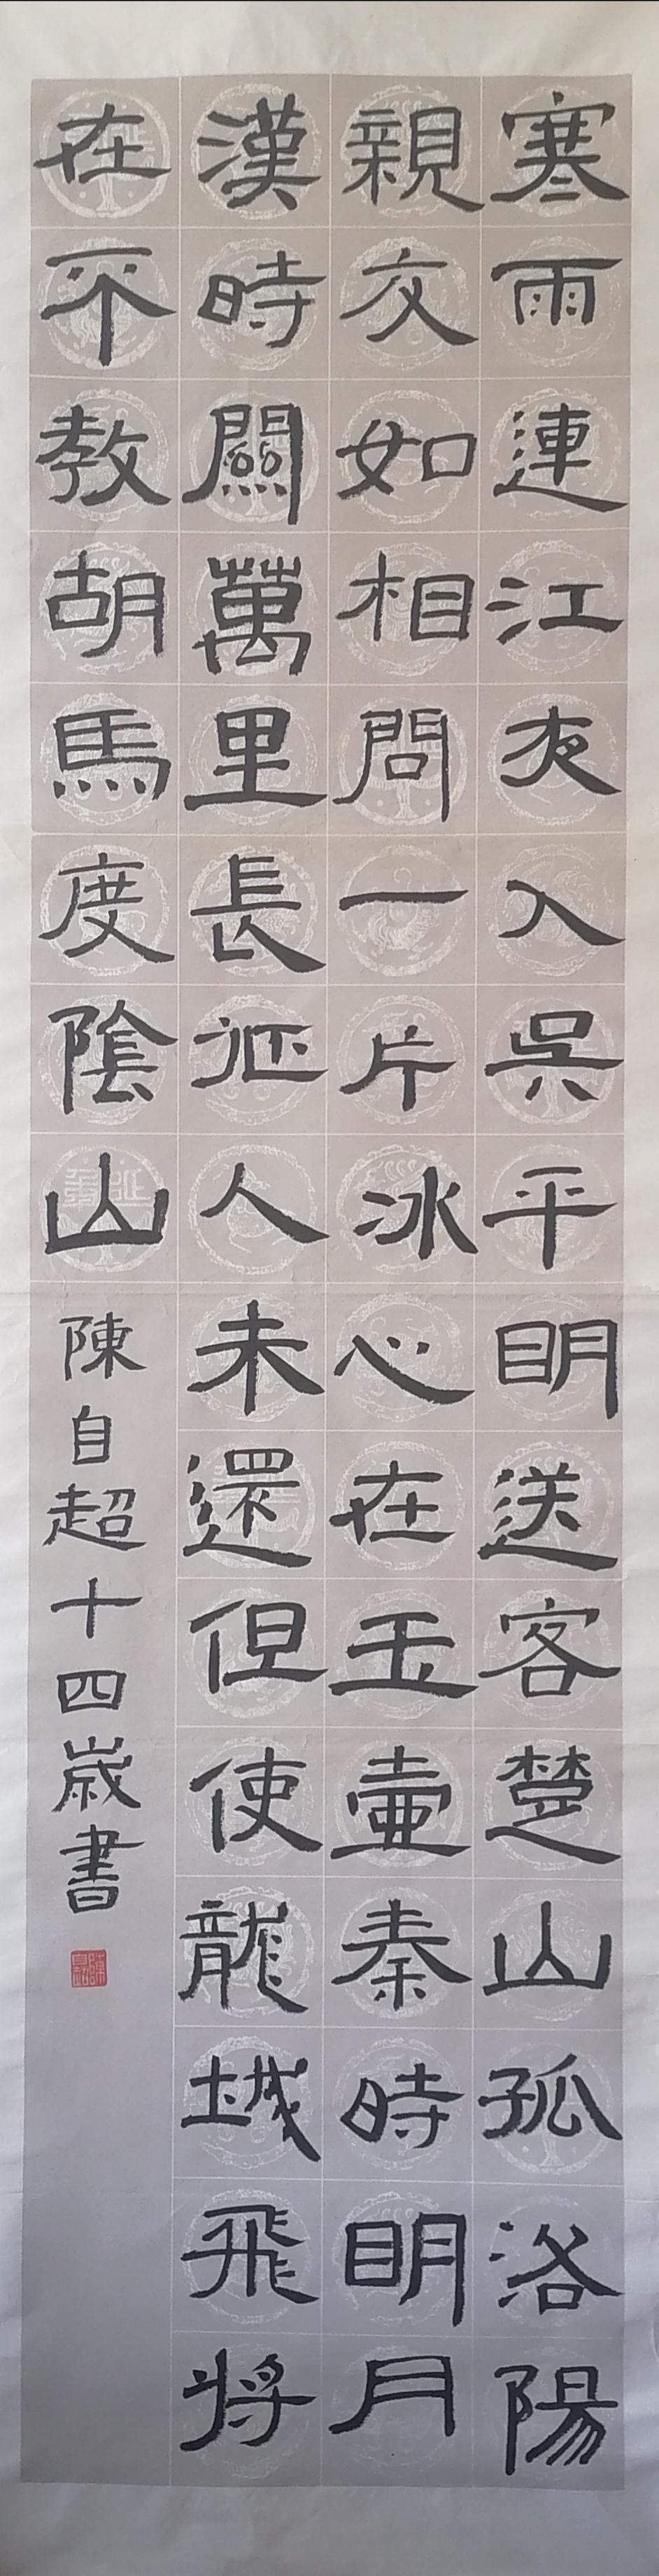 寒雨連江夜入吳平明送客楚山孤洛陽
親友如相問一片冰心在玉壺秦時明月
漢時關萬里長征人未還但使龍城飛將
在不教胡馬度陰山
陳自超十四歲書